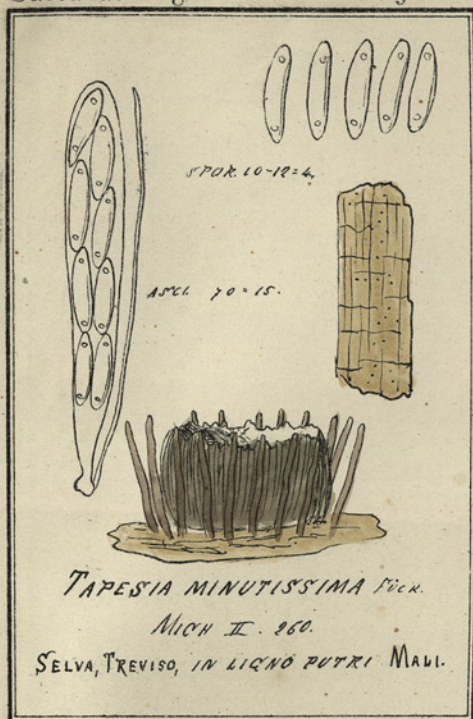 SPOR. 10-12=4.
ASCI. 70=15.
TAPESIA MINUTISSIMA FUCK.
MICH II. 260.
SELVA, TREVISO, IN LIGNO PUTRI MALI.